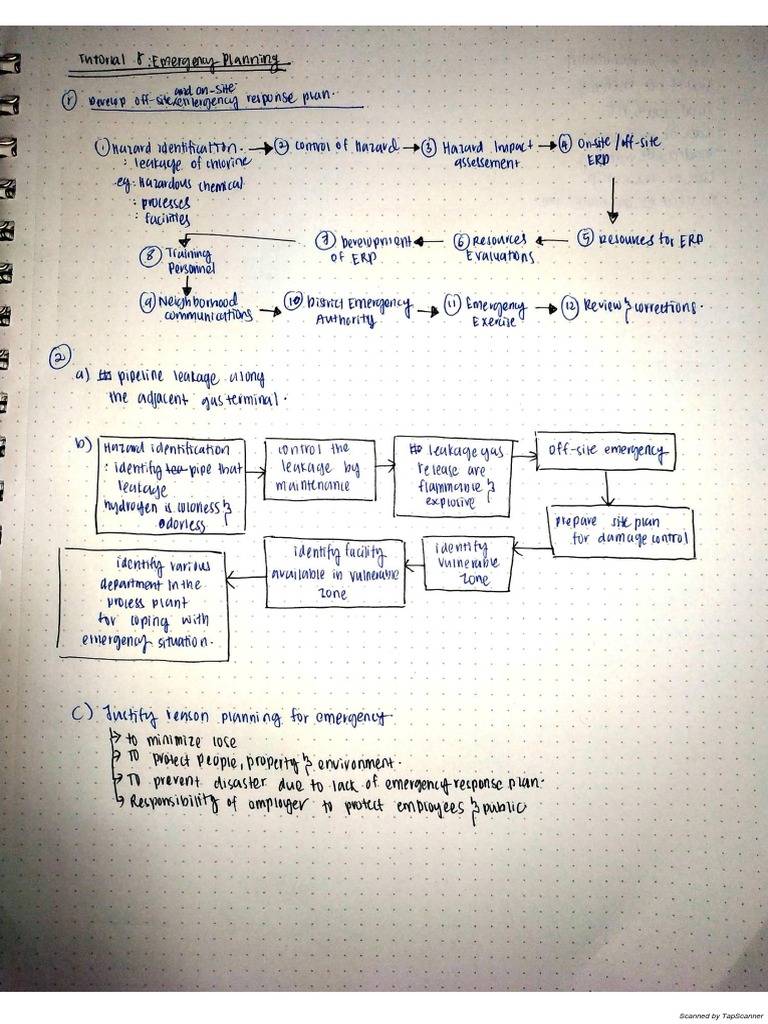 Tutorial 8: Emergency Planning
and on-site
① Develop off-site/emergency response plan.
① Hazard identification. → ② control of hazard → ③ Hazard Impact → ④ Onsite/off-site
: leakage of chlorine assessement. ERP
eg: Hazardous chemical
: processes
: facilities
⑦ Development ← ⑥ Resources ← ⑤ Resources for ERP
of ERP Evaluations.
⑧ Training
Personnel
⑨ Neighborhood → ⑩ District Emergency → ⑪ Emergency → ⑫ Review & corrections.
communications Authority Exercise
②
a) pipeline leakage along
the adjacent gas terminal.
b) Hazard identification
: identify pipe that
leakage
hydrogen is colorless &
odorless
control the
leakage by
maintenance
leakage gas
release are
flammable &
explosive
off-site emergency
prepare site plan
for damage control
identify
vulnerable
zone
identify facility
available in vulnerable
zone
identify various
department in the
process plant
for coping with
emergency situation.
c) Justify reason planning for emergency
→ to minimize lose
→ To protect people, property & environment.
→ To prevent disaster due to lack of emergency response plan.
→ Responsibility of employer to protect employees & public
Scanned by TapScanner